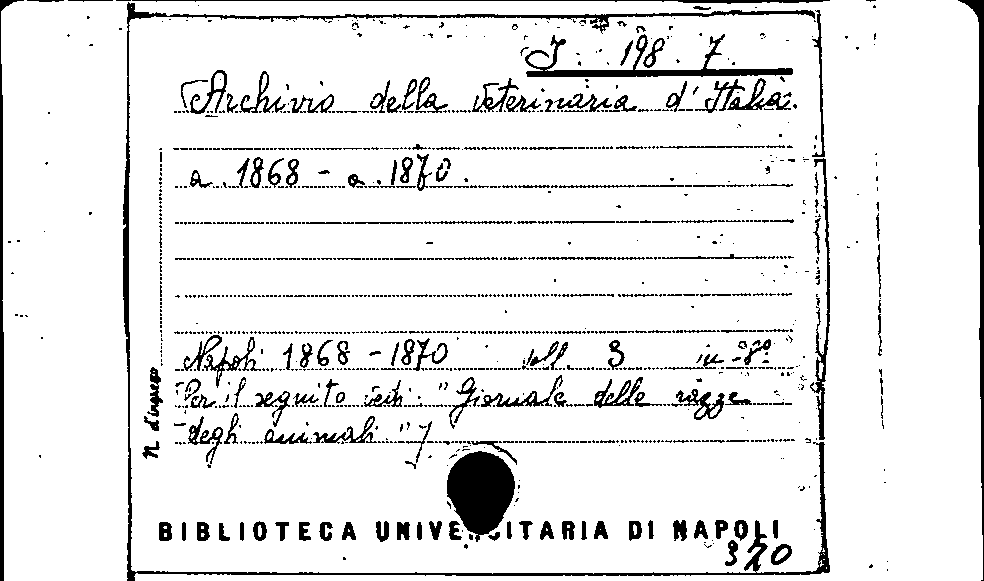 J. 198. 7.
[Archivio della veterinaria d'Italia.
a. 1868 - a. 1870.
Napoli 1868 - 1870 voll. 3 in-8º.
[Per il seguito vedi: "Giornale delle razze
degli animali"].
N. d'ingresso
BIBLIOTECA UNIVERSITARIA DI NAPOLI
370